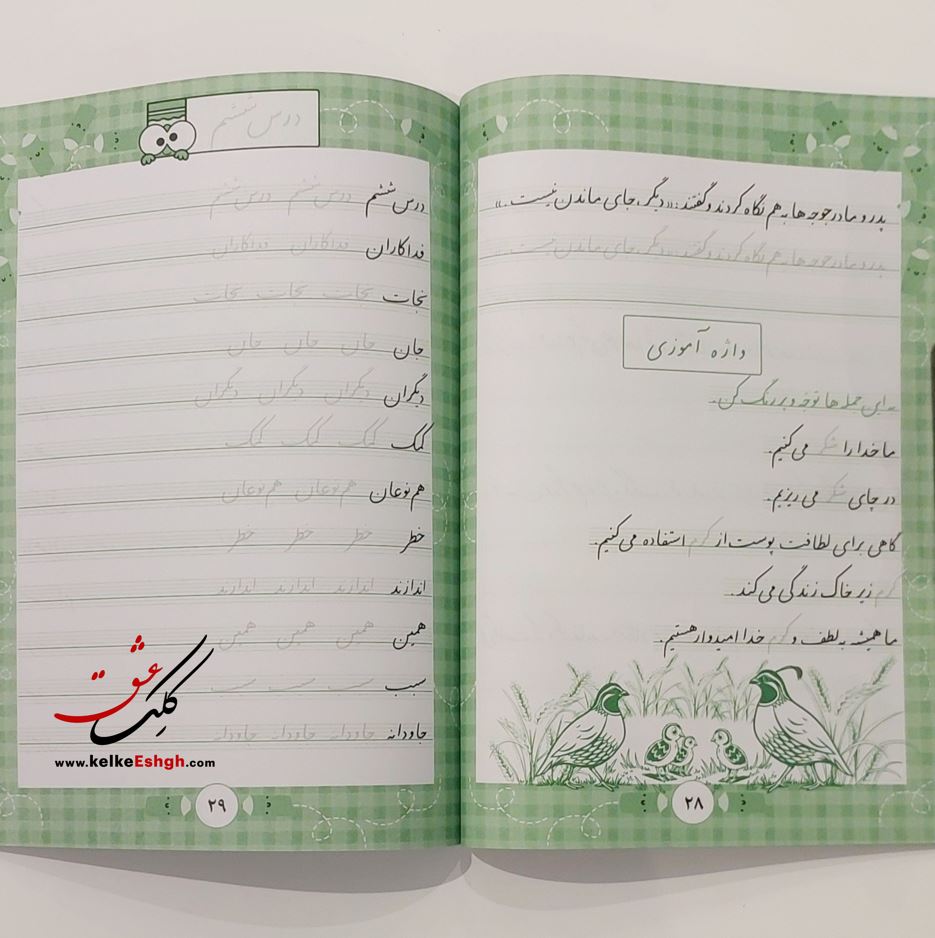 پدر و مادر جوجه‌ها به هم نگاه کردند و گفتند: «دیگر جای ماندن نیست.»
پدر و مادر جوجه‌ها به هم نگاه کردند و گفتند: «دیگر جای ماندن نیست.»
واژه آموزی
به این جمله‌ها توجه و پررنگ کن.
ما خدا را شکر می‌کنیم.
در چای شکر می‌ریزیم.
گاهی برای لطافت پوست از کرم استفاده می‌کنیم.
کرم زیر خاک زندگی می‌کند.
ما همیشه به لطف و کرم خدا امیدوار هستیم.
۲۸
درس ششم
درس ششم درس ششم درس ششم
فداکاران فداکاران فداکاران
نجات نجات نجات نجات
جان جان جان جان
دیگران دیگران دیگران دیگران
کمک کمک کمک کمک
هم‌نوعان هم‌نوعان هم‌نوعان
خطر خطر خطر خطر
اندازند اندازند اندازند اندازند
همین همین همین همین
سبب سبب سبب سبب
جاودانه جاودانه جاودانه جاودانه
کلک عشق
www.kelkeEshgh.com
۲۹